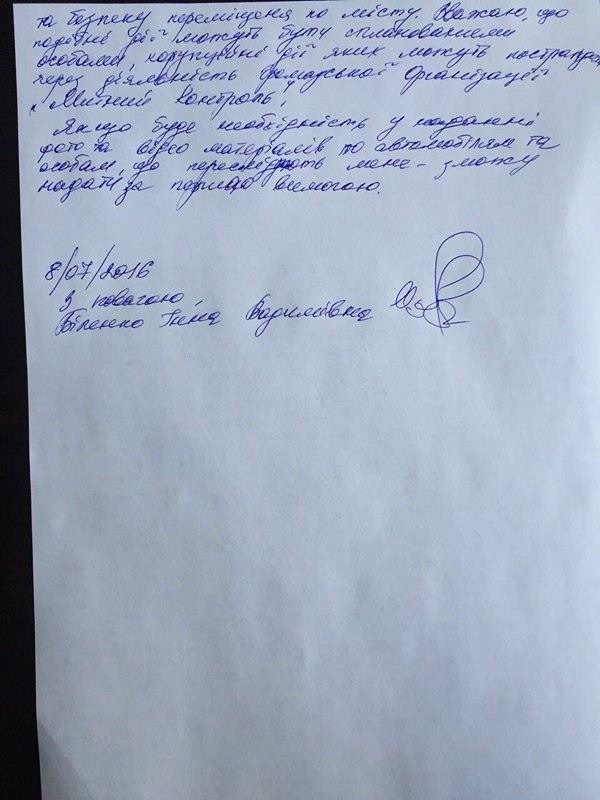 та безпеку переміщеня по місту. Вважаю, що
подібні дії можуть бути спланованими
особами, корупційні дії яких можуть постраждат
через діяльність громадської Організації
„Митний Контроль"
Якщо буде необхідність у наданні
фото та відео матеріалів по автомобілям та
особам, що переслідують мене - зможу
надати за першою вимогою.
8/07/2016
З повагою,
Біленко Інна Вадимівна